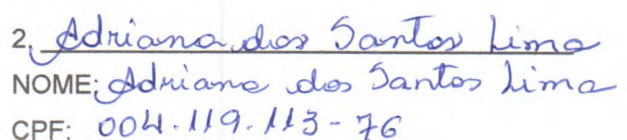 2. Adriana dos Santos Lima
NOME: Adriana dos Santos Lima
CPF: 004.119.113-76